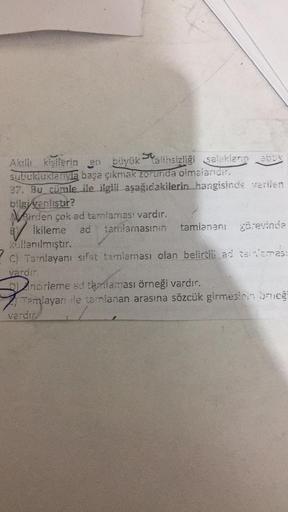 Akıllı kişilerin en büyük talihsizliği salakların abuk
subukluklarıyla başa çıkmak zorunda olmalarıdır.
37. Bu cümle ile ilgili aşağıdakilerin hangisinde verilen
bilgi yanlıştır?
A) Birden çok ad tamlaması vardır.
B) İkileme ad tamlamasının tamlananı görevinde
kullanılmıştır.
C) Tamlayanı sıfat tamlaması olan belirtili ad tamlaması
vardır.
D) Zincirleme ad tamlaması örneği vardır.
E) Tamlayan ile tamlanan arasına sözcük girmesinin örneği
vardır.